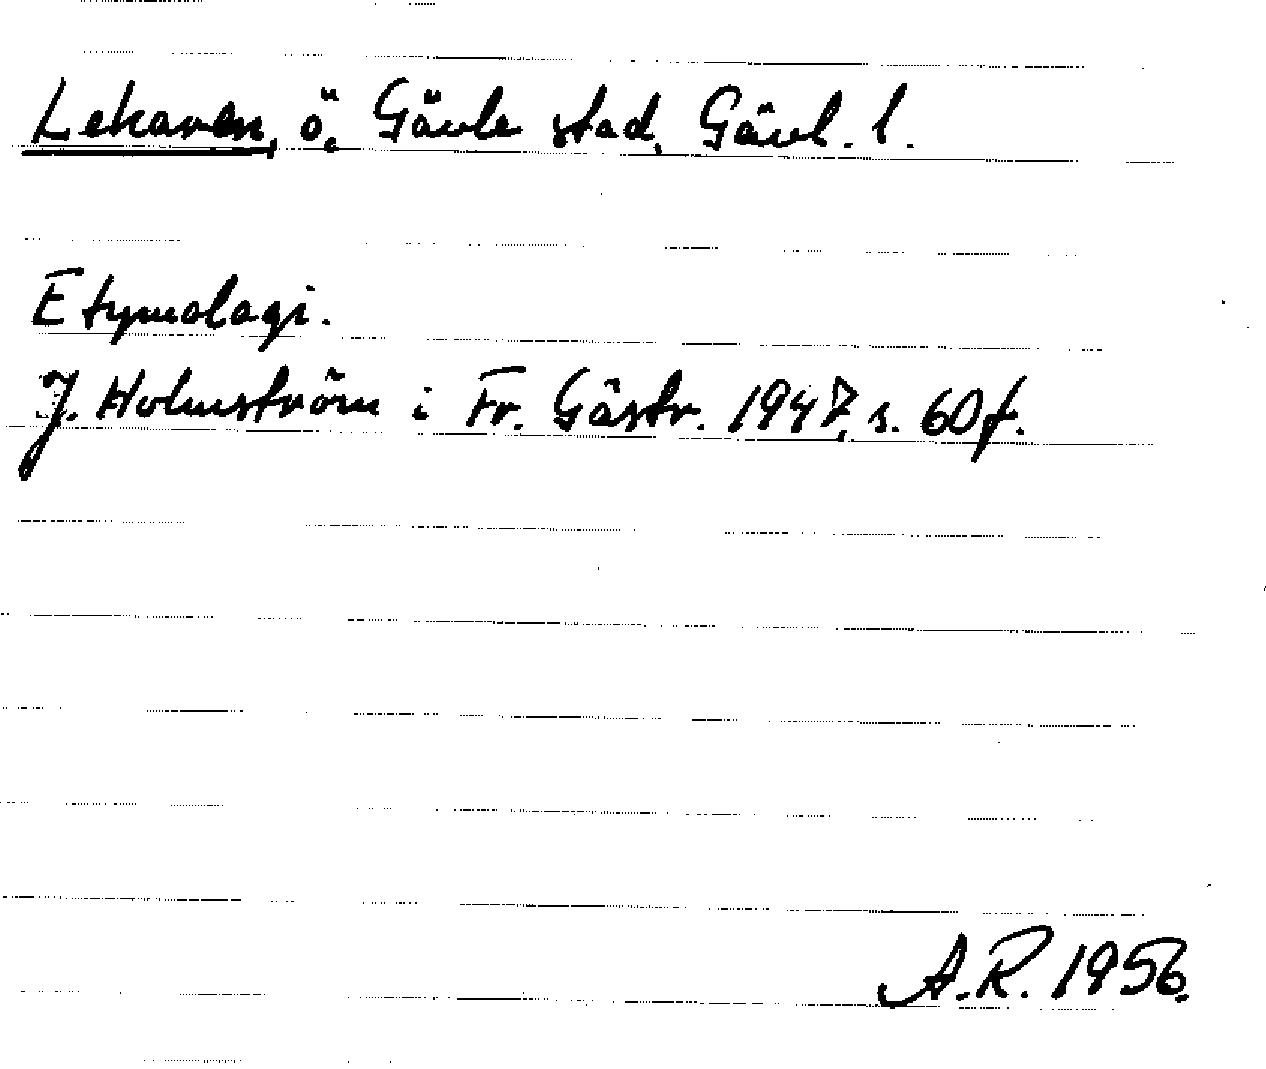 Lekaren, ö. Gävle stad, Gävl. l.
Etymologi.
J. Holmström i Fr. Gästr. 1947, s. 60 f.
A.R. 1956.